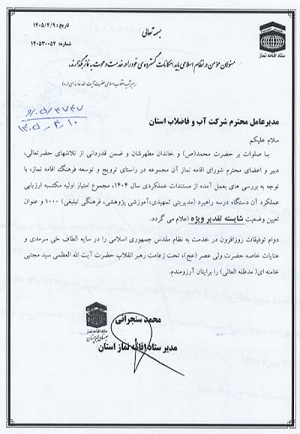 بسمه تعالی
تاریخ: ۱۴۰۵/۴/۹
شماره: ۱۴۰۵۳۰۰۵۲
ستاد اقامه نماز
مسئولان مؤمن در نظام اسلامی باید امکانات گسترده‌ی خود را در خدمت دعوت به نماز بگذارند.
مدیرعامل محترم شرکت آب و فاضلاب استان
سلام علیکم
با صلوات بر حضرت محمد(ص) و خاندان مطهرشان و ضمن قدردانی از تلاشهای حضرتعالی،
دبیر و اعضای محترم شورای اقامه نماز آن مجموعه در راستای ترویج و توسعه فرهنگ اقامه نماز، با
توجه به بررسی های بعمل آمده از مستندات عملکردی سال ۱۴۰۴، مجموع امتیاز اولیه مکتسبه ارزیابی
عملکرد آن دستگاه درسه راهبرد (مدیریتی تمهیدی،آموزشی پژوهشی، فرهنگی تبلیغی) ۱۰۰۰ و عنوان
تعیین وضعیت شایسته تقدیر ویژه اعلام می گردد.
دوام توفیقات روزافزون در خدمت به نظام مقدس جمهوری اسلامی را در سایه الطاف علی سرمدی و
عنایات خاصه حضرت ولی عصر (عج)، تحت زعامت رهبر انقلاب حضرت آیت الله العظمی سید مجتبی
خامنه ای(مدظله العالی) را برایتان آرزومندم.
محمد سنجرانی
مدیر ستاد اقامه نماز استان